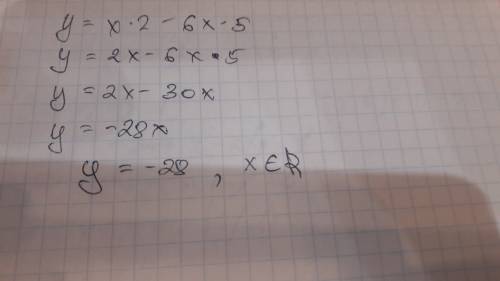 y = x · 2 - 6x · 5
y = 2x - 6x · 5
y = 2x - 30x
y = -28x
y = -28 , x ∈ R